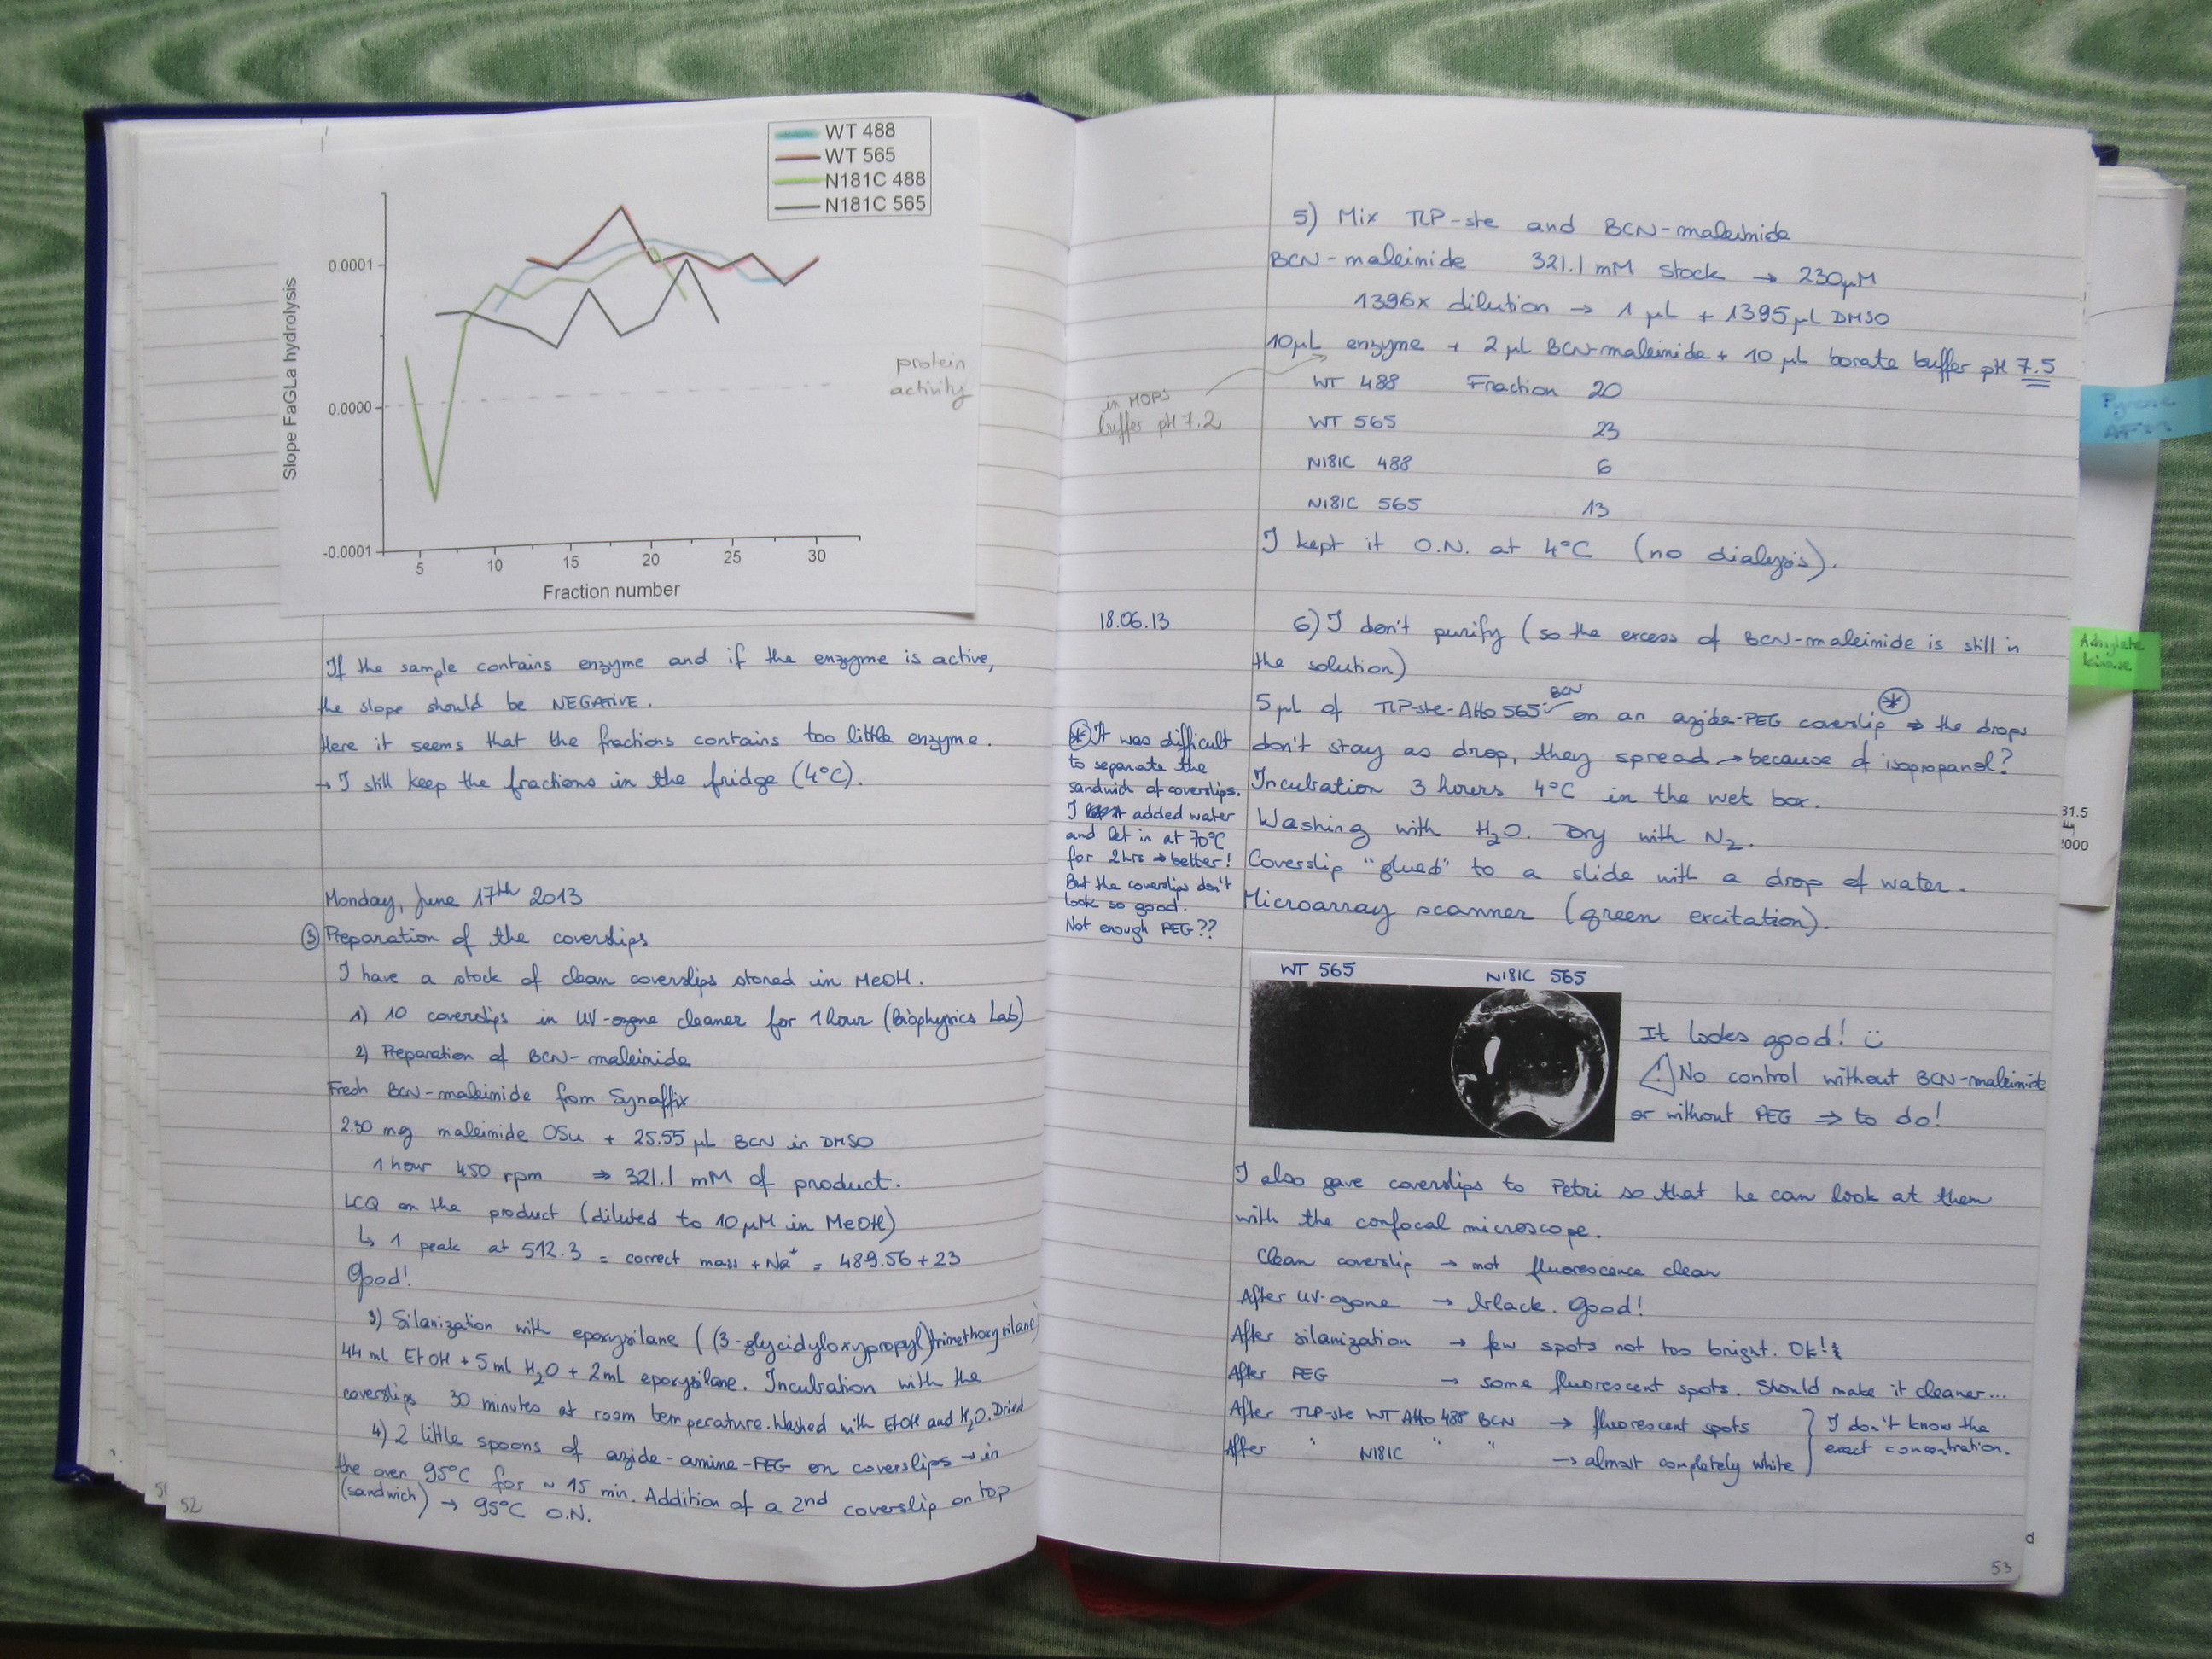 WT 488
WT 565
N181C 488
N181C 565
Slope FaGLa hydrolysis
0.0001
0.0000
-0.0001
5 10 15 20 25 30
Fraction number
protein
activity
If the sample contains enzyme and if the enzyme is active,
the slope should be NEGATIVE.
Here it seems that the fractions contains too little enzyme.
→ I still keep the fractions in the fridge (4°C).
Monday, June 17th 2013
③ Preparation of the coverslips
I have a stock of clean coverslips stored in MeOH.
1) 10 coverslips in UV-ozone cleaner for 1 hour (Biophysics Lab)
2) Preparation of BCN-maleimide
Fresh BCN-maleimide from Synaffix
2.50 mg maleimide OSu + 25.55 µL BCN in DMSO
1 hour 450 rpm ⇒ 321.1 mM of product.
LCQ on the product (diluted to 10 µM in MeOH)
↳ 1 peak at 512.3 = correct mass + Na+ = 489.56 + 23
Good!
3) Silanization with epoxysilane ((3-glycidyloxypropyl)trimethoxysilane)
44 ml EtOH + 5 ml H2O + 2ml epoxysilane. Incubation with the
coverslips 30 minutes at room temperature. Washed with EtOH and H2O. Dried
4) 2 little spoons of azide-amine-PEG on coverslips → in
the oven 95°C for ~ 15 min. Addition of a 2nd coverslip on top
(sandwich) → 95°C O.N.
52
5) Mix TLP-ste and BCN-maleimide
BCN-maleimide 321.1 mM stock → 230µM
1396x dilution → 1 µL + 1395 µL DMSO
10µL enzyme + 2 µL BCN-maleimide + 10 µL borate buffer pH 7.5
in MOPS
buffer pH 7.2
WT 488 Fraction 20
WT 565 23
N181C 488 6
N181C 565 13
I kept it O.N. at 4°C (no dialysis).
18.06.13
6) I don't purify (so the excess of BCN-maleimide is still in
the solution)
5 µL of TLP-ste-Atto 565 BCN on an azide-PEG coverslip ⊛ ⇒ the drops
don't stay as drop, they spread → because of isopropanol?
Incubation 3 hours 4°C in the wet box.
Washing with H2O. Dry with N2.
Coverslip "glued" to a slide with a drop of water.
Microarray scanner (green excitation).
⊛ It was difficult
to separate the
sandwich of coverslips.
I added water
and let in at 70°C
for 2hrs → better!
But the coverslips don't
look so good.
Not enough PEG??
WT 565 N181C 565
It looks good! ☺
⚠ No control without BCN-maleimide
or without PEG ⇒ to do!
I also gave coverslips to Petri so that he can look at them
with the confocal microscope.
Clean coverslip → not fluorescence clean
After UV-ozone → black. Good!
After silanization → few spots not too bright. Ok!
After PEG → some fluorescent spots. Should make it cleaner...
After TLP-ste WT Atto 488 BCN → fluorescent spots
After " N181C " " → almost completely white
I don't know the
exact concentration.
53
Pyrene
Adenylate
kinase
31.5
2000
d